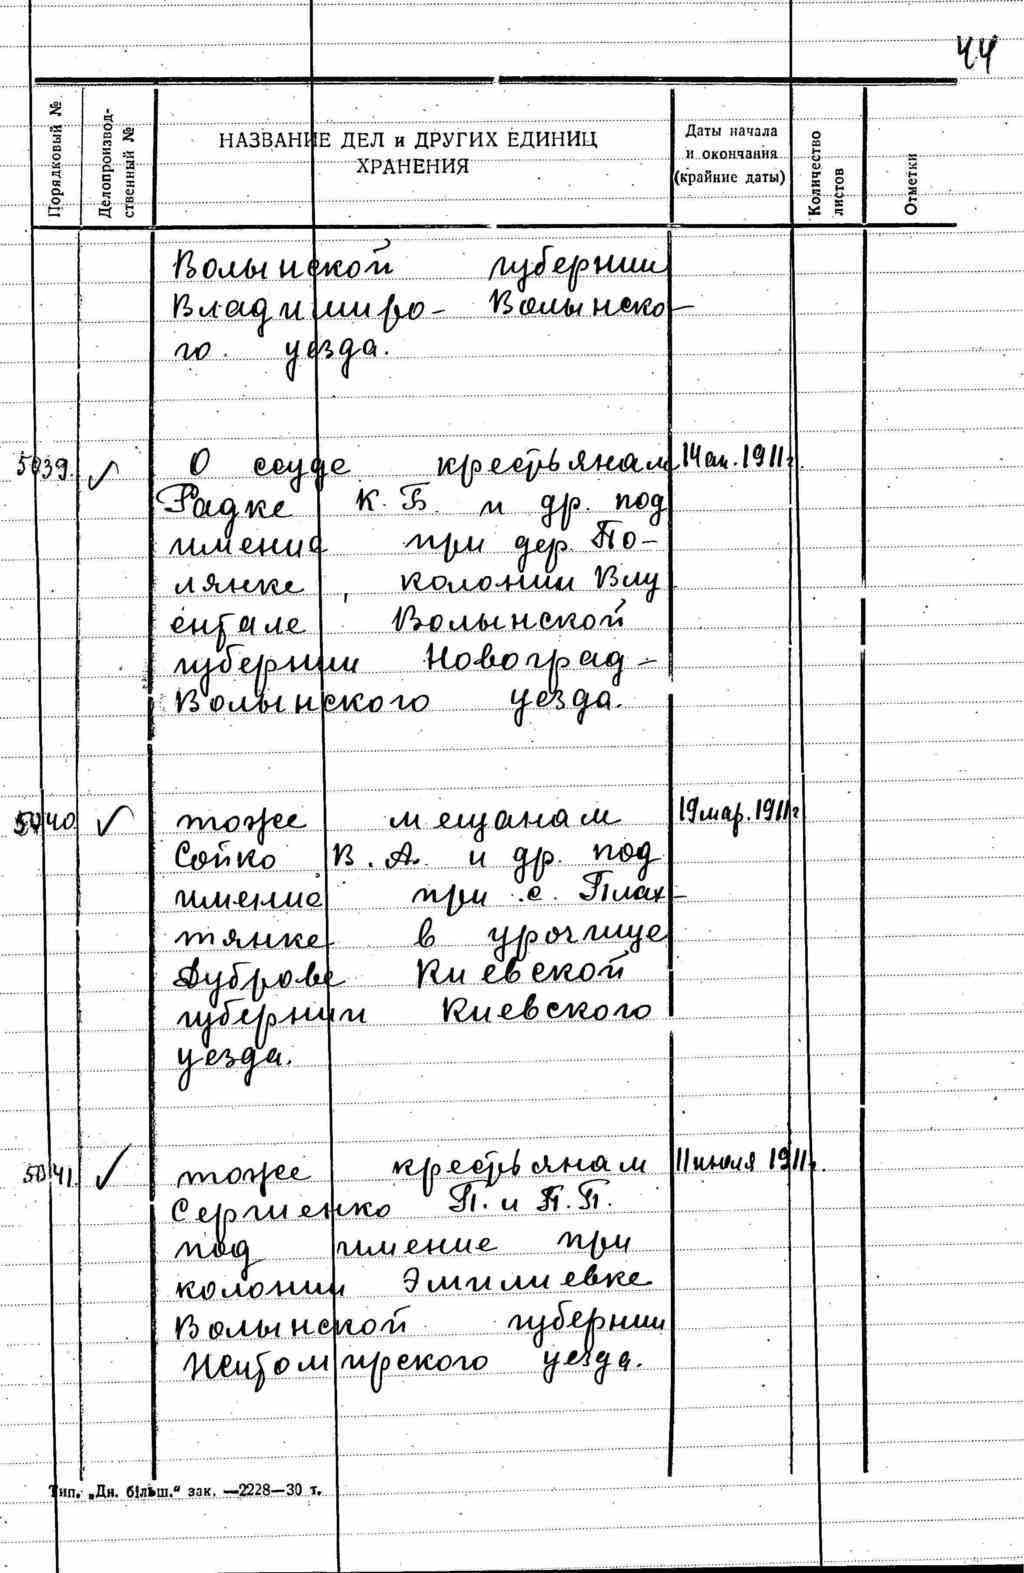 44
Порядковый №
Делопроизвод-
ственный №
НАЗВАНИЕ ДЕЛ и ДРУГИХ ЕДИНИЦ
ХРАНЕНИЯ
Даты начала
и окончания
(крайние даты)
Количество
листов
Отметки
Волынской губернии
Владимиро- Волынско-
го уезда.
5039. О ссуде крестьянам 1911г.
Радке К. Б. и др. под
имение при дер. По-
лянке, колонии Блу
ентале Волынской
губернии Новоград-
Волынского уезда.
5040 тоже мещанам 19 мар. 1911г
Сойко В. А. и др. под
имение при с. Плах-
тянке в урочище
Дуброве Киевской
губернии Киевского
уезда.
5041. тоже крестьянам 11 июля 1911г.
Сергиенко П. и П. П.
под имение при
колонии Эмилиевке
Волынской губернии
Житомирского уезда.
Тип. „Дн. більш.“ зак. —2228—30 т.